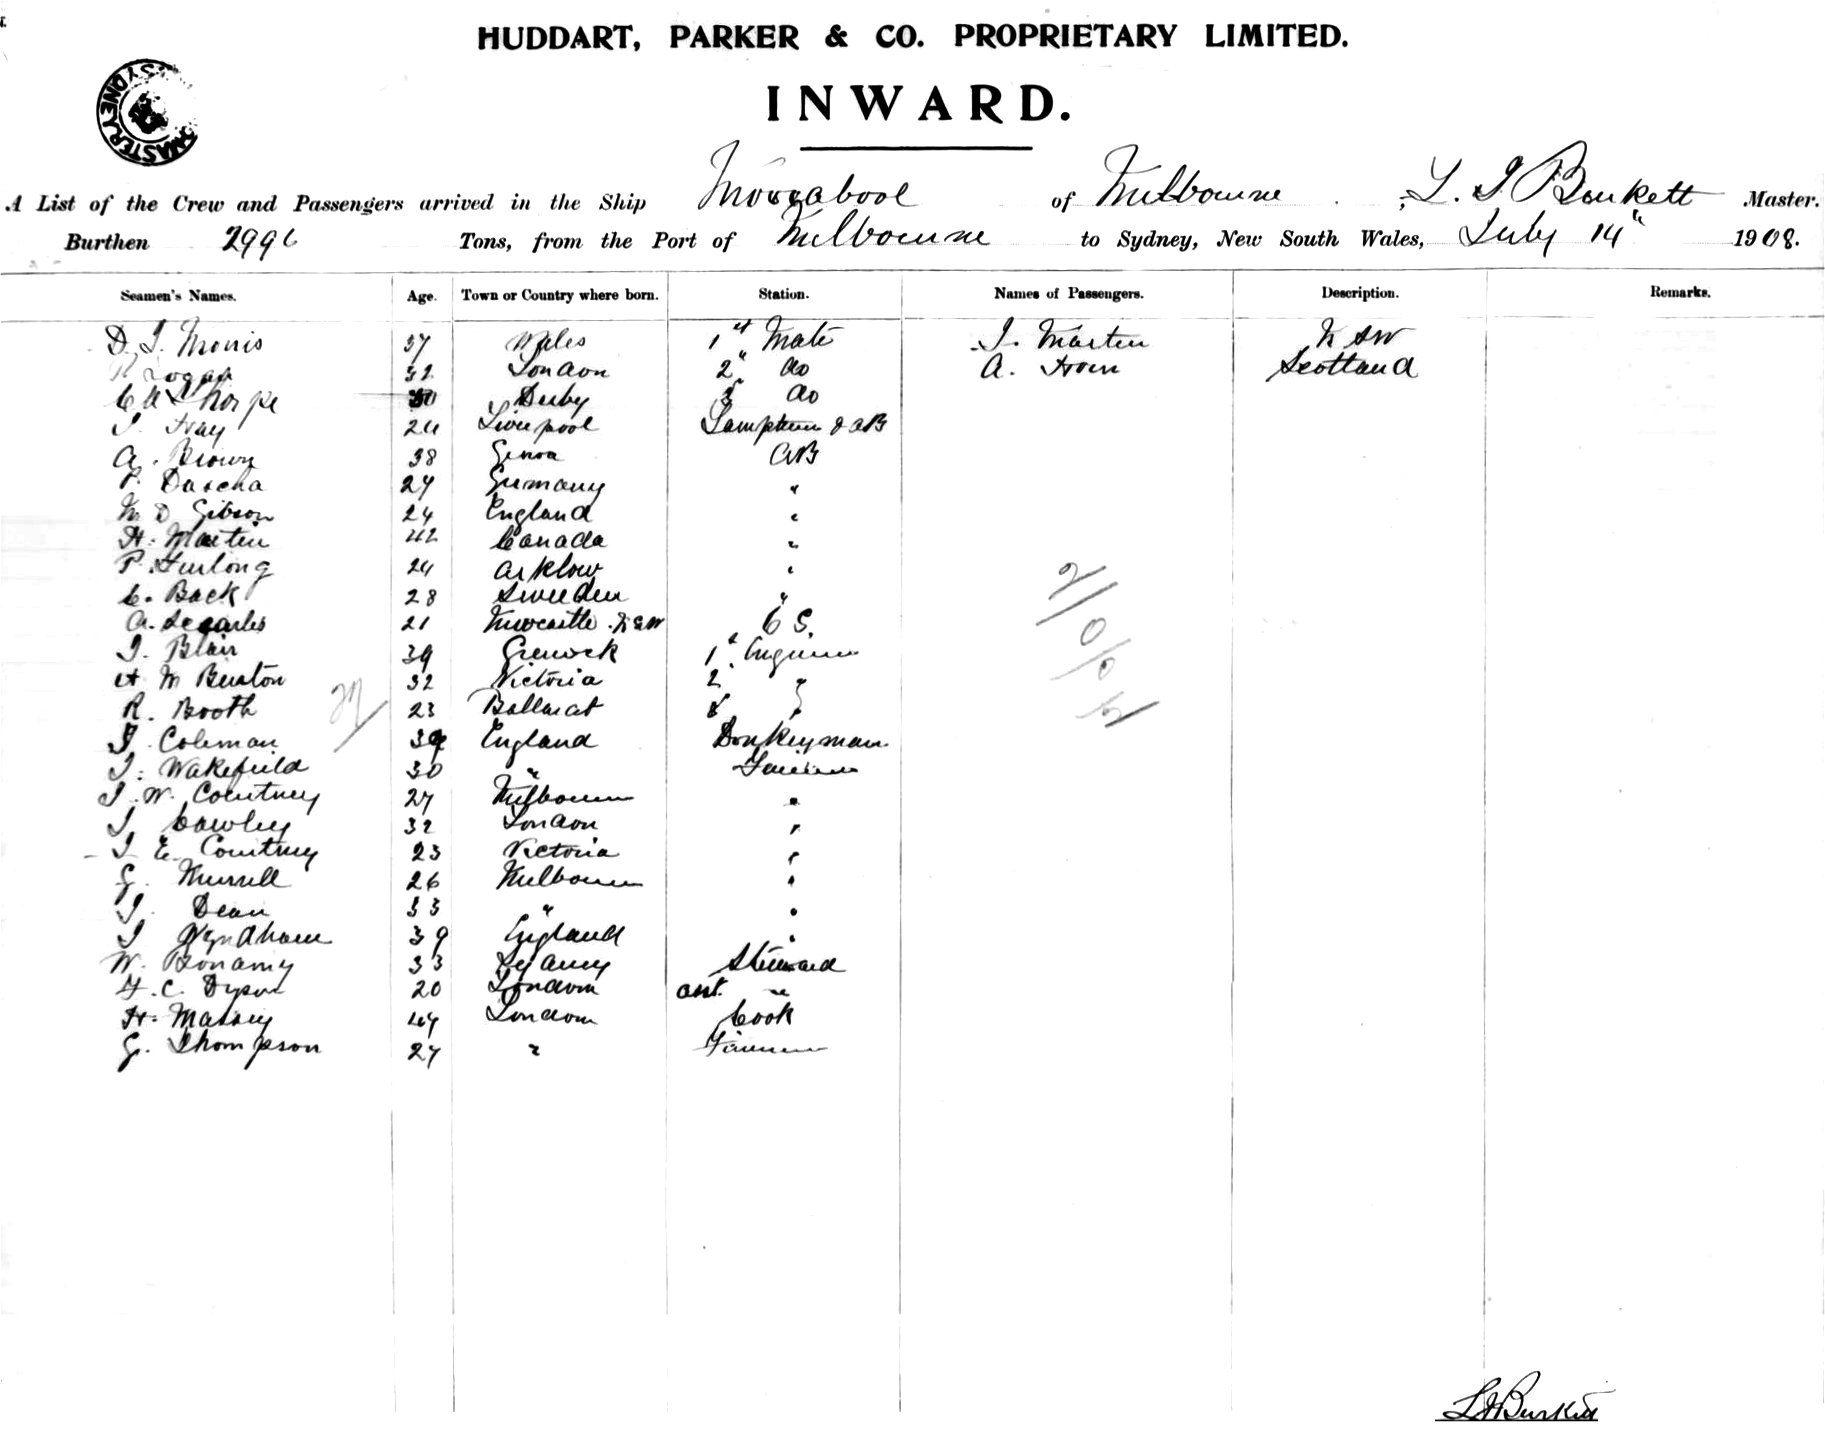 HUDDART, PARKER & CO. PROPRIETARY LIMITED.
INWARD.
SYDNEY
A List of the Crew and Passengers arrived in the Ship Moorabool of Melbourne, L. J Burkett Master.
Burthen 2996 Tons, from the Port of Melbourne to Sydney, New South Wales, July 14" 1908.
Seamen's Names. Age. Town or Country where born. Station. Names of Passengers. Description. Remarks.
D. J. Morris 37 Wales 1st Mate J. Martin N SW
R Logan 32 London 2" do A. Hoen Scotland
C W Thorpe 30 Derby 3 do
J. Fray 24 Liverpool Lamptrim & AB
A. Brown 38 Genoa AB
P. Dascha 27 Germany "
N D Gibson 24 England "
H. Martin 42 Canada "
P. Furlong 24 Arklow "
C. Back 28 Sweden "
A. Searles 21 Newcastle N S W C S.
J. Blair 39 Greenock 1st Engineer
H M Burton 32 Victoria 2 "
R. Booth 23 Ballarat 3 "
J. Coleman 39 England Donkeyman
J. Wakefield 30 " Fireman
J. W. Courtney 27 Melbourne "
J Cawley 32 London "
J E Courtney 23 Victoria "
G. Murrell 26 Melbourne "
J. Dean 33 " "
J Wyndham 39 England "
W. Bonamy 33 Steward
F. C. Dyson 20 London asst. "
H. Massey 47 London Cook
G. Thompson 27 " Fireman
27/
2/0/0/2/
L J Burkett